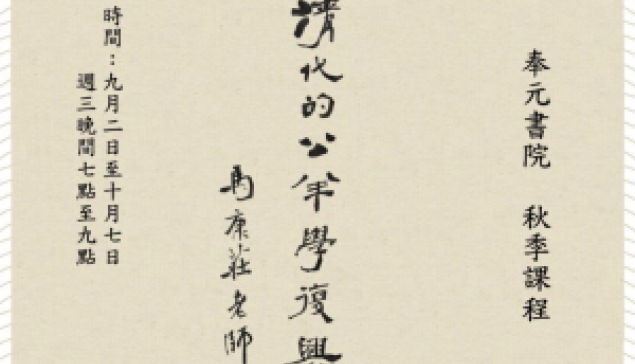 奉元書院 秋季課程
清代的公羊學復興
馬康莊老師
時間：九月二日至十月七日
週三晚間七點至九點